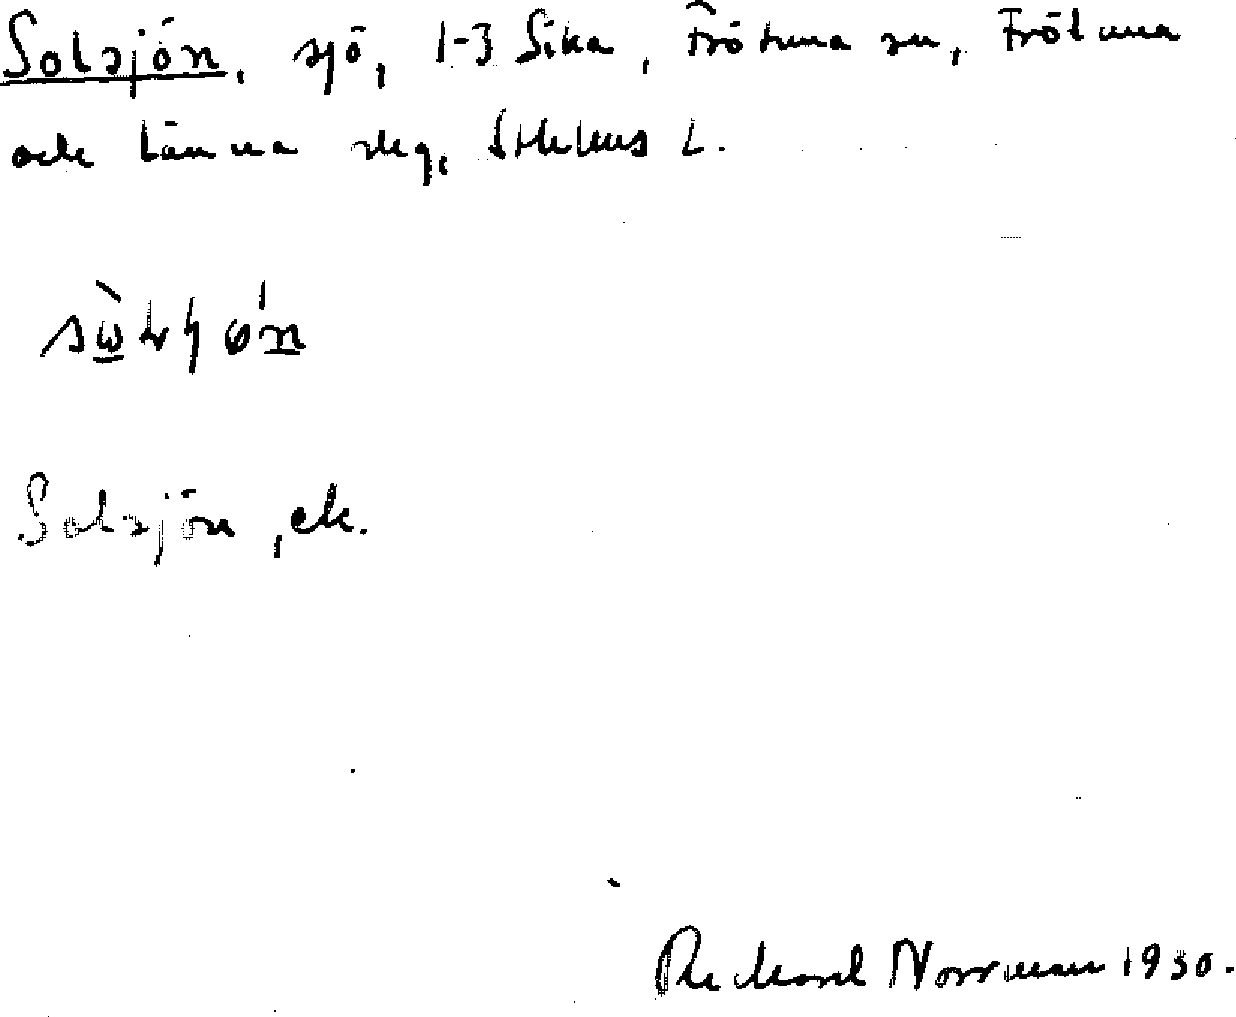 Solsjön, sjö, 1-3 Sika, Frötuna sn, Frötuna
och Länna skg, Sthlms L.
Solsjön, ek.
Richard Norrman 1930.